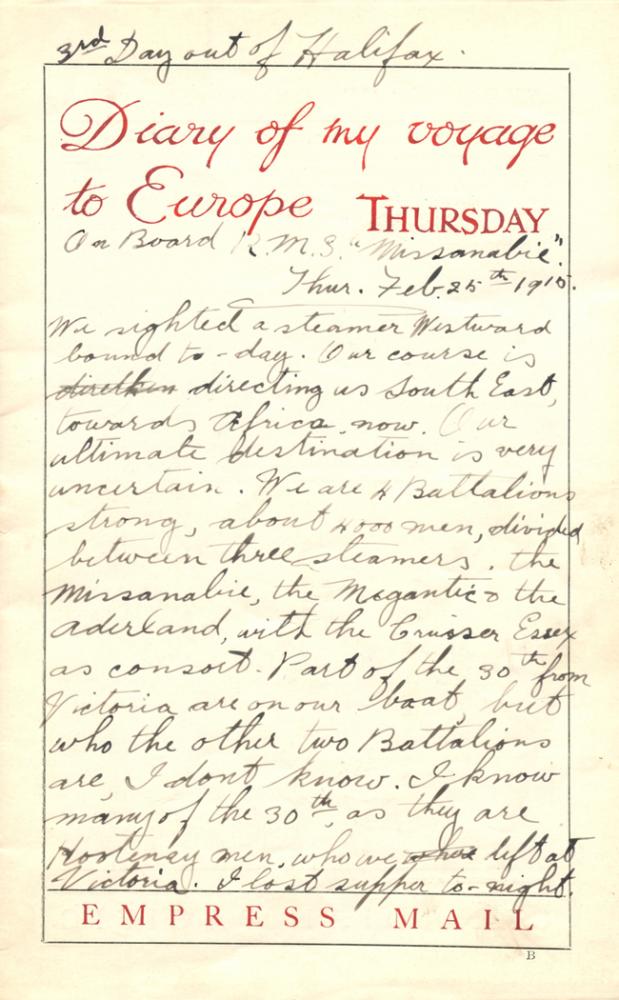 3rd Day out of Halifax.
Diary of my voyage
to Europe THURSDAY
On Board R.M.S. "Missanabie".
Thur. Feb. 25th 1915.
We sighted a steamer Westward
bound to-day. Our course is
directing us South East,
towards Africa, now. Our
ultimate destination is very
uncertain. We are 4 Battalions
strong, about 4000 men, divided
between three steamers. The
Missanabie, the Megantic & the
Aderland, with the Cruiser Essex
as consort. Part of the 30th from
Victoria are on our boat, but
who the other two Battalions
are, I dont know. I know
many of the 30th, as they are
Kootenay men, who we left at
Victoria. I lost supper to-night.
EMPRESS MAIL
B